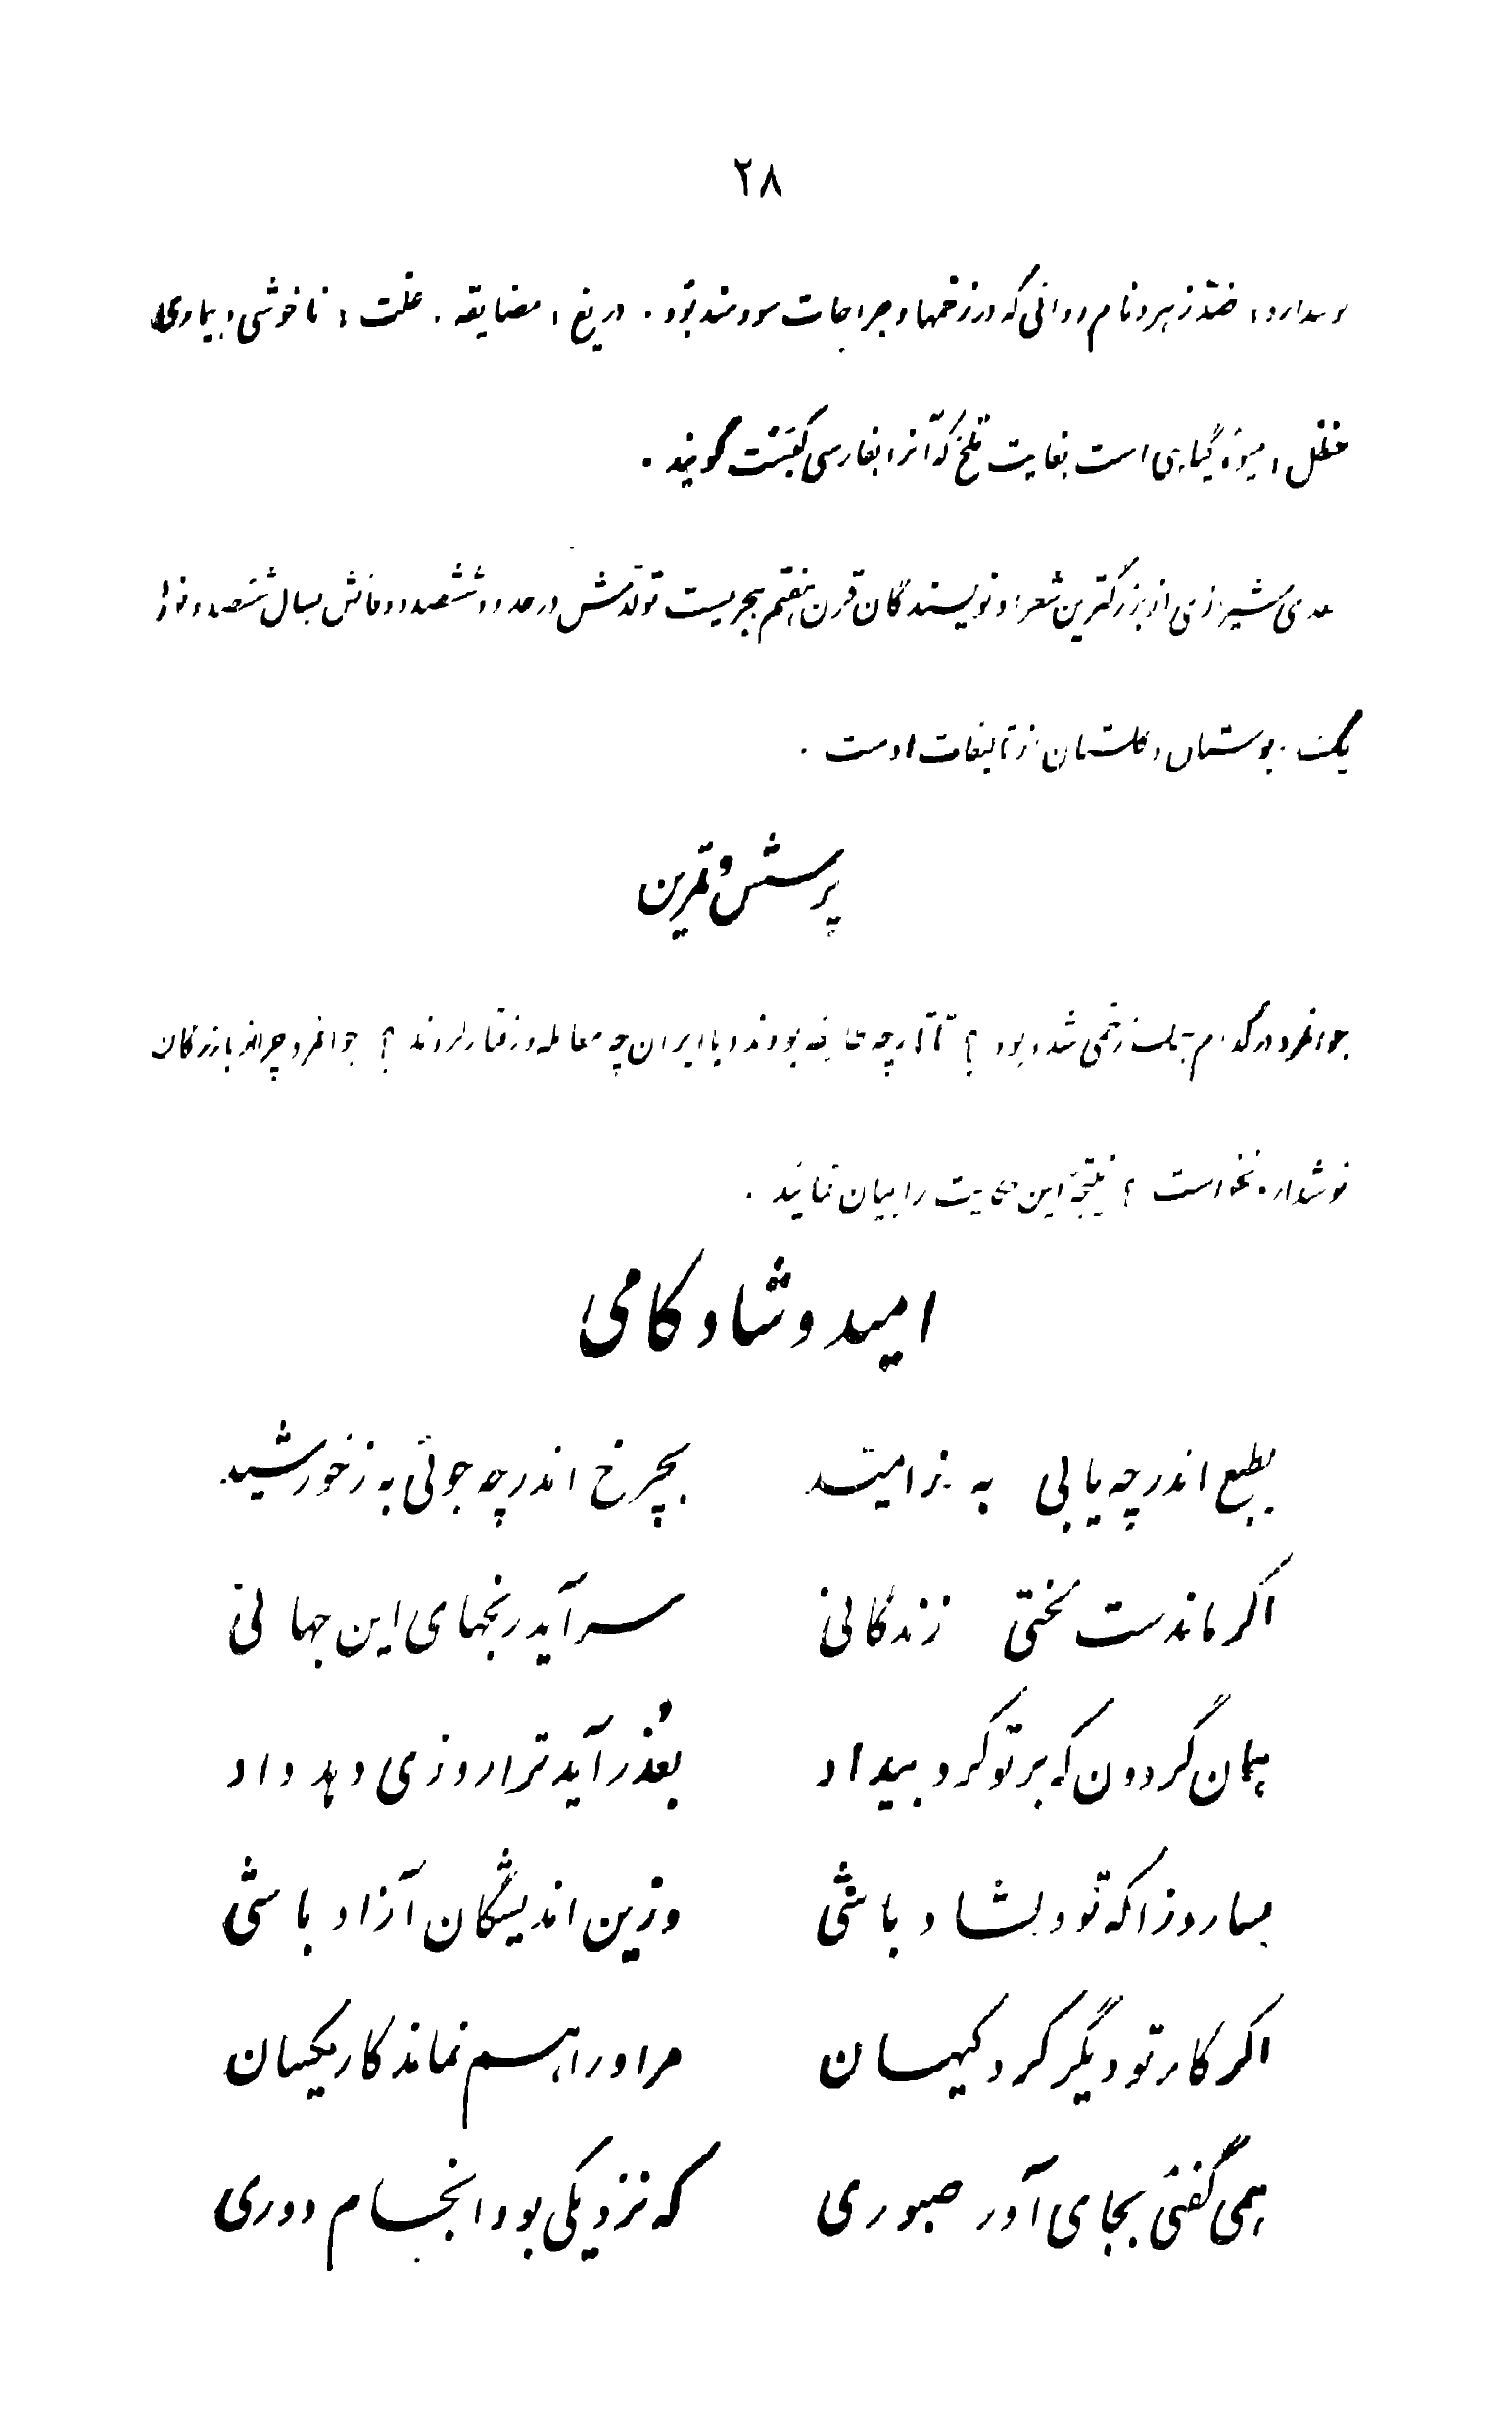 ۲۸
نوشدارو، ضدّ زهر و نام دوائی که در زخمها و جراحات سودمند بود . دریغ ، مضایقه . علّت ؛ ناخوشی و بیماری
حنظل ، میوهٔ گیاهی است بغایت تلخ که آنرا بفارسی کَبَست گویند .
سعدی شیرازی از بزرگترین شعرا و نویسندگان قرن هفتم هجریست تولّدش در حدود ششصد و وفاتش بسال ششصد و نود و
یک . بوستان و گلستان از تألیفات اوست .
پرسش و تمرین
جوانمرد در کدام جنگ زخمی شده بود ؟ تاتار چه طایفه بودند و با ایران چه معامله و رفتار کردند ؟ جوانمرد چرا از بازرگان
نوشدارو نخواست ؟ نتیجهٔ این حکایت را بیان نمائید .
امید و شادکامی
بطبع اندر چه یابی به ز امّید بچرخ اندر چه جوئی به ز خورشید
اگر ماندست لختی زندگانی سر آید رنجهای این جهانی
همان گردون که بر تو کرد بیداد بعذر آید ترا روزی دهد داد
بسا روزا که تو دلشاد باشی وزین اندیشگان آزاد باشی
اگر کار تو دیگر کرد کیهان مرا و را هم نماند کار یکسان
همی گفتی بجای آور صبوری که نزدیکی بود انجام دوری